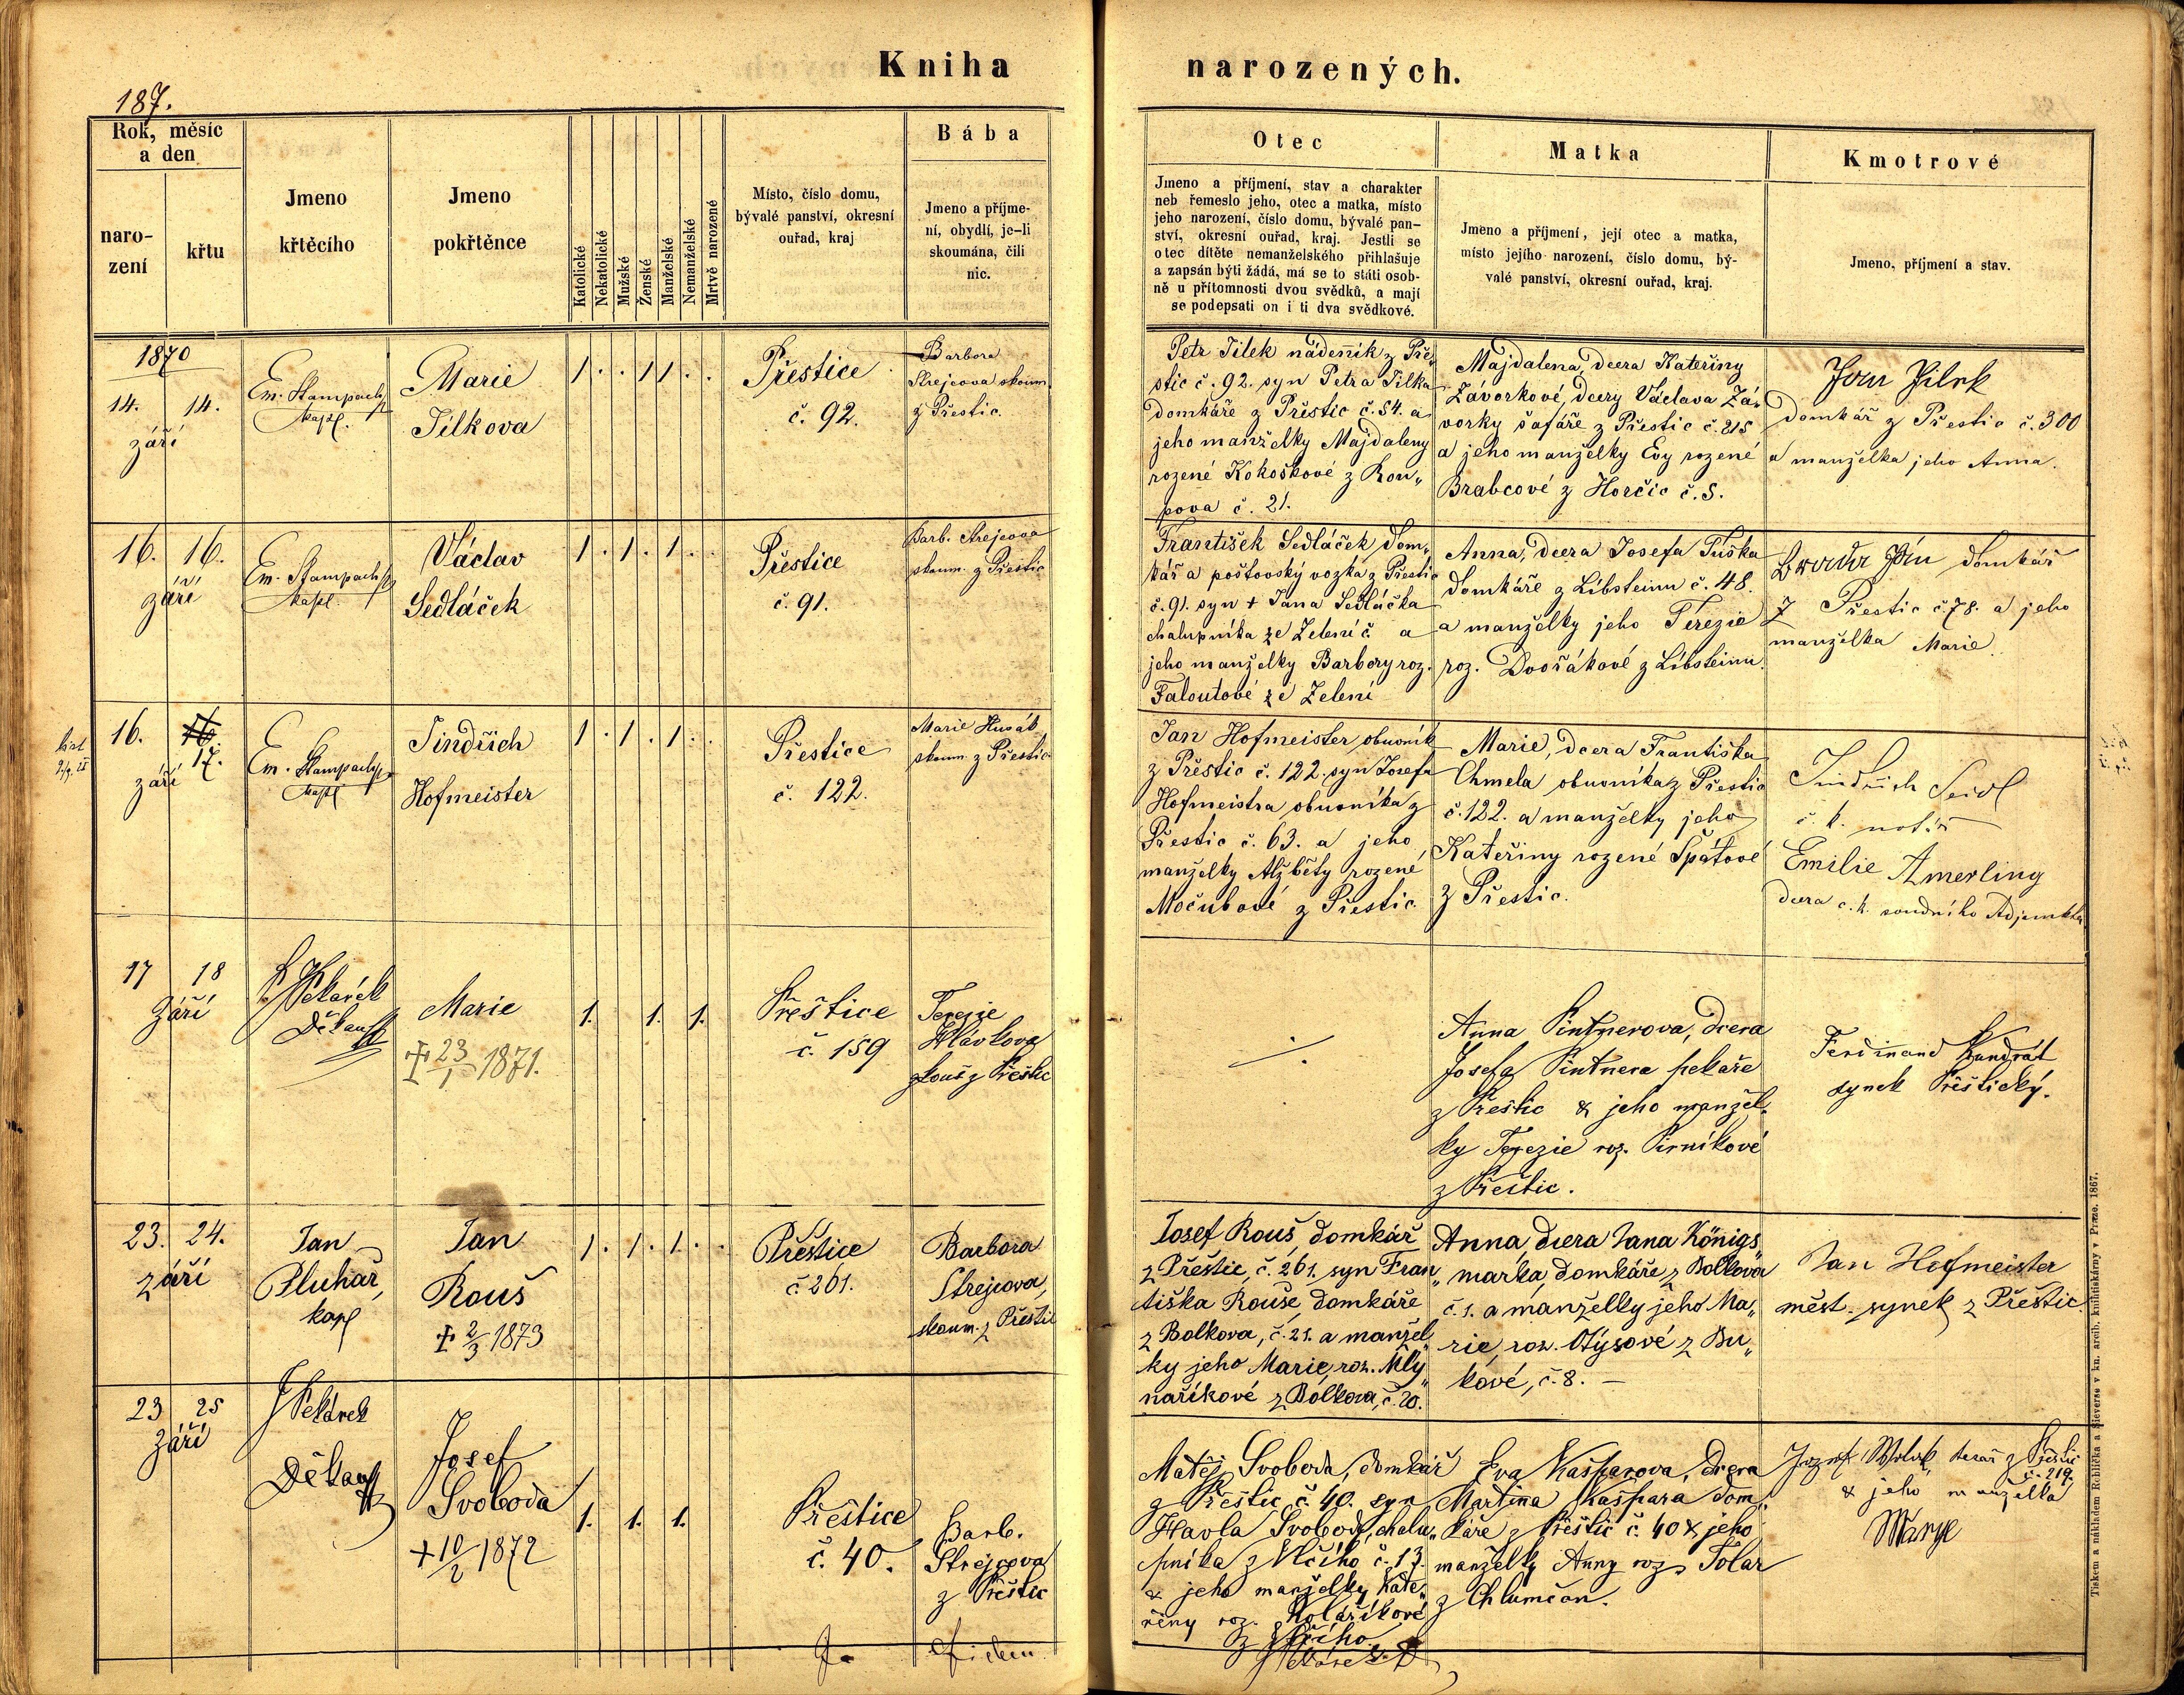 Kniha narozených.
187.
Rok, měsíc
a den
naro-
zení
křtu
Jmeno
křtěcího
Jmeno
pokřtěnce
Katolické
Nekatolické
Mužské
Ženské
Manželské
Nemanželské
Mrtvě narozené
Místo, číslo domu,
bývalé panství, okresní
ouřad, kraj
Bába
Jmeno a příjme-
ní, obydlí, je-li
skoumána, čili
nic.
Otec
Jmeno a příjmení, stav a charakter
neb řemeslo jeho, otec a matka, místo
jeho narození, číslo domu, bývalé pan-
ství, okresní ouřad, kraj. Jestli se
otec dítěte nemanželského přihlašuje
a zapsán býti žádá, má se to státi osob-
ně u přítomnosti dvou svědků, a mají
se podepsati on i ti dva svědkové.
Matka
Jmeno a příjmení, její otec a matka,
místo jejího narození, číslo domu, bý-
valé panství, okresní ouřad, kraj.
Kmotrové
Jmeno, příjmení a stav.
1870
14. 14.
září
Em. Stampach
kapl.
Marie
Jílkova
1 . . 1 1 . .
Přestice
č. 92.
Barbora
Strejcova skoum.
z Přestic.
Petr Jílek nádenník z Pře„
stic č. 92. syn Petra Jílka
domkáře z Přestic č. 54. a
jeho manželky Majdaleny
rozené Kokoškové z Rou„
pova č. 21.
Majdalena, dcera Kateřiny
Závorkové, dcery Václava Zá„
vorky šafáře z Přestic č. 215
a jeho manželky Evy rozené
Brabcové z Horčic č. 5.
Jan Jílek
domkář z Přestic č. 300
a manželka jeho Anna.
16. 16.
září
Em. Stampach
kapl.
Václav
Sedláček
1 . 1 . 1 . .
Přestice
č. 91.
Barb. Strejcova
skoum. z Přestic
František Sedláček dom„
kář a poštovský vozka z Přestic
č. 91. syn + Jana Sedláčka
chalupníka ze Zelení č. a
jeho manželky Barbory roz.
Faloutové ze Zelení
Anna, dcera Josefa Tuška
domkáře z Líbsteinu č. 48.
a manželky jeho Terezie
roz. Dvořákové z Líbsteinu.
domkář
z Přestic č. 78. a jeho
manželka Marie.
16. 16.
17.
září
Em. Stampach
kapl
Jindřich
Hofmeister
1 . 1 . 1 . .
Přestice
č. 122.
Marie Husák
skoum. z Přestic
Jan Hofmeister obuvník
z Přestic č. 122. syn Josefa
Hofmeistra obuvníka z
Přestic č. 63. a jeho
manželky Alžběty rozené
Močubové z Přestic.
Marie, dcera Františka
Chmela obuvníka z Přestic
č. 122. a manželky jeho
Kateřiny rozené Špátové
z Přestic.
Jindřich Seidl
c. k. notář
Emilie Amerling
dcera c. k. soudního Adjunkta
17 18
Září
Pekárek
Děkan
Marie
+ 23/1 1871.
1. 1. 1.
Přeštice
č. 159
Terezie
Hlávkova
zkouš z Přeštic
Anna Pintnerova, dcera
Josefa Pintnera pekaře
z Přeštic & jeho manžel„
ky Terezie roz. Pirníkové
z Přeštic.
Ferdinand Kundrát
synek Přeštický.
23. 24.
září
Jan
Pluhař,
kapl
Jan
Rouš
+ 2/3 1873
1 . 1 . 1 . .
Přeštice
č. 261.
Barbora
Strejcova,
skoum. z Přeštic
Josef Rouš, domkář
z Přeštic, č. 261. syn Fran„
tiška Rouše, domkáře
z Bolkova, č. 21. a manžel„
ky jeho Marie, roz. Mly„
naříkové z Bolkova, č. 20.
Anna, dcera Jana Königs„
marka, domkáře z Bolkova
č. 1. a manželky jeho Ma„
rie, roz. Otýsové z Bu„
kové, č. 8. —
Jan Hofmeister
měst. synek z Přeštic
23 25
Září
Pekárek
Děkan
Josef
Svoboda
+ 10/2 1872
1. 1. 1.
Přeštice
č. 40.
Barb.
Strejcova
z Přeštic
Matěj Svoboda, domkář
z Přeštic č. 40. syn
Havla Svobody, chalu„
pníka z Vlčího č. 17.
& jeho manželky Kate„
řiny roz. Kolaříkové
z Vlčího.
Pekárek D
Eva Kašparova, dcera
Martina Kašpara dom„
káře z Přeštic č. 40 & jeho
manželky Anny roz. Tolar
z Chlumčan.
Jozef tesař z Přeštic
č. 219.
& jeho manželka
Marye
Tiskem a nákladem Rohlíčka a Sieverse v kn. arcib. knihtiskárny v Praze. 1867.